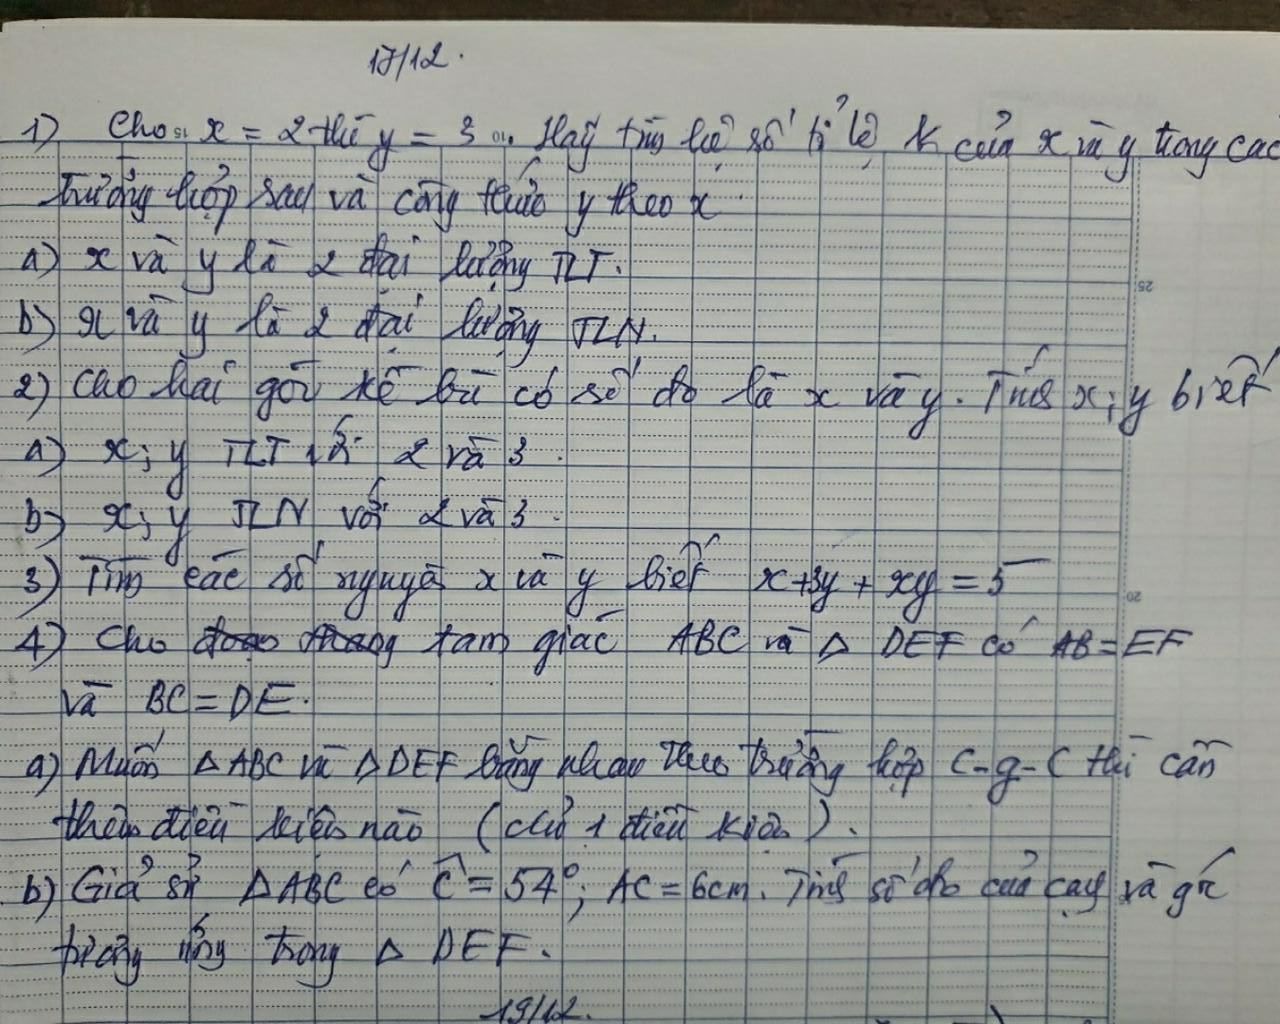 17/12.
1) Cho x = 2 thì y = 3. Hãy tìm hệ số tỉ lệ k của x và y trong các
trường hợp sau và công thức y theo x
a) x và y là 2 đại lượng TLT.
b) x và y là 2 đại lượng TLN.
2) Cho hai góc kề bù có số đo là x và y. Tính x; y biết
a) x; y TLT với 2 và 3.
b) x; y TLN với 2 và 3.
3) Tìm các số nguyên x và y biết x+3y + xy = 5
4) Cho tam giác ABC và Δ DEF có AB = EF
và BC = DE.
a) Muốn Δ ABC và Δ DEF bằng nhau theo trường hợp C-g-C thì cần
thêm điều kiện nào (chỉ 1 điều kiện).
b) Giả sử Δ ABC có Ĉ = 54°; AC = 6cm. Tính số đo của cạnh và góc
tương ứng trong Δ DEF.
19/12.